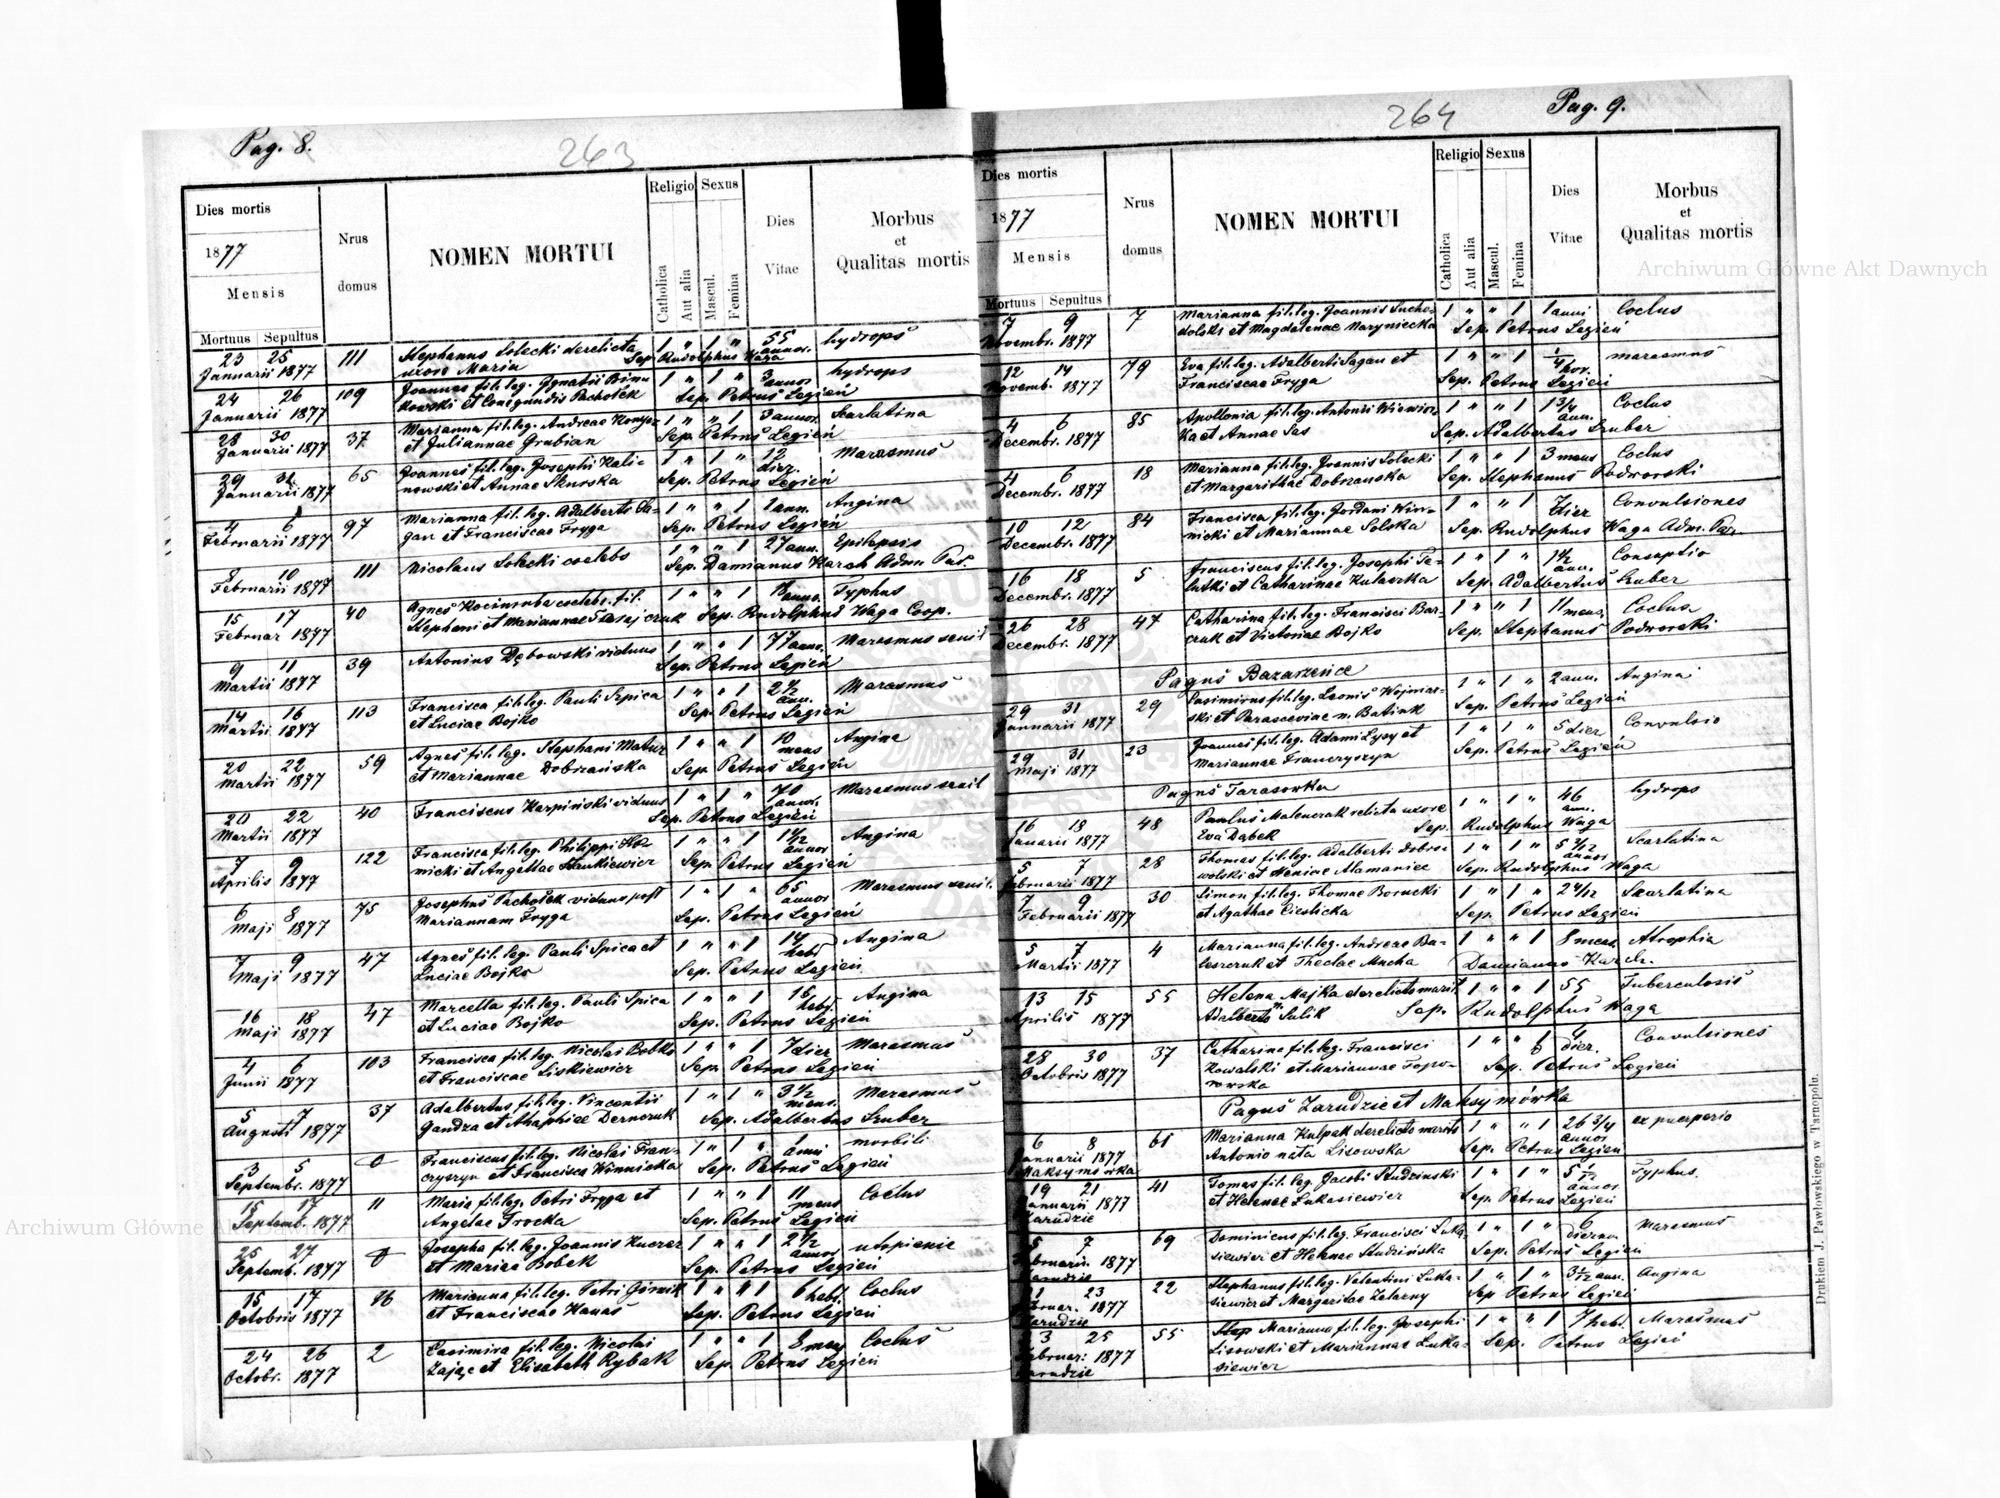 Pag. 8.
263
Dies mortis
1877
Mensis
Mortuus Sepultus
Nrus
domus
NOMEN MORTUI
Religio
Catholica
Aut alia
Sexus
Mascul.
Femina
Dies
Vitae
Morbus
et
Qualitas mortis
23 25 111 Stephanus Solecki derelicta 1 " 1 " 55 hydrops
Januarii 1877 uxore Maria Sep. Rudolphus Waga annor.
24 26 109 Joannes fil. leg. Ignatii 1 " 1 " 3 annor. hydrops
Januarii 1877 et Conegundis Pachołek Sep. Petrus Legień
28 30 37 Marianna fil. leg. Andreae 1 " " 1 3 annor. Scarlatina
Januarii 1877 et Juliannae Grubian Sep. Petrus Legień
29 31 65 Joannes fil. leg. Josephi Kali- 1 " 1 " 12 Marasmus
Januarii 1877 nowski et Annae Skurska Sep. Petrus Legień dier.
4 6 97 Marianna fil. leg. Adalberti Sa- 1 " " 1 1 ann. Angina
Februarii 1877 gan et Franciscae Fryga Sep. Petrus Legień
8 10 111 Nicolaus Solecki coelebs 1 " " 1 27 ann. Epilepsis
Februarii 1877 Sep. Damianus Karch Adm. Par.
15 17 40 Agnes coelebs. fil. 1 " " 1 annor. Typhus
Februar 1877 Stephani et Mariannae Sep. Rudolphus Waga Coop.
9 11 39 Antonius Dębowski viduus 1 " " 1 77 ann. Marasmus senil
Martii 1877 Sep. Petrus Legień
14 16 113 Francisca fil. leg. Pauli Szpica 1 " " 1 2 1/2 Marasmus
Martii 1877 et Luciae Bojko Sep. Petrus Legień ann.
20 22 59 Agnes fil. leg. Stephani Matur 1 " " 1 10 Angina
Martii 1877 et Mariannae Dobrzańska Sep. Petrus Legień mens
20 22 40 Franciscus Karpiński viduus 1 " 1 " 70 Marasmus senil
Martii 1877 Sep. Petrus Legień annor.
7 9 122 Francisca fil. leg. Philippi 1 " " 1 1 1/2 Angina
Aprilis 1877 et Angellae Sep. Petrus Legień annor
6 8 75 Josephus Pachołek viduus post 1 " 1 " 65 Marasmus senil.
Maji 1877 Mariannam Fryga Sep. Petrus Legień annor
7 9 47 Agnes fil. leg. Pauli Spica et 1 " " 1 14 Angina
Maji 1877 Luciae Bojko Sep. Petrus Legień hebd
16 18 47 Marcella fil. leg. Pauli Spica 1 " " 1 15 Angina
Maji 1877 et Luciae Bojko Sep. Petrus Legień hebd.
4 6 103 Francisca fil. leg. Nicolai Bobko 1 " " 1 7 dier Marasmus
Junii 1877 et Franciscae Liskiewicz Sep. Petrus Legień
5 7 37 Adalbertus fil. leg. Vincentii 1 " 1 " 3 1/2 Marasmus
Augusti 1877 Gandza et Ahaphiae Dernczuk Sep. Adalbertus Szuber mens.
3 5 0 Franciscus fil. leg. Nicolai Fran- 1 " 1 " 1 morbili
Septembr. 1877 czyszyn et Francisca Winnicka Sep. Petrus Legień anni
15 17 11 Maria fil. leg. Petri Fryga et 1 " " 1 11 Coclus
Septemb. 1877 Angelae Trocka Sep. Petrus Legień mens
25 27 0 Josepha fil. leg. Joannis Kuczer 1 " " 1 2 1/2 utopienie
Septemb. 1877 et Mariae Bobek Sep. Petrus Legień annor
15 17 16 Marianna fil. leg. Petri Górnik 1 " " 1 6 hebd. Coclus
Octobris 1877 et Franciscae Hanas Sep. Petrus Legień
24 26 2 Casimira fil. leg. Nicolai 1 " " 1 8 mens Coclus
Octobr. 1877 Zając et Elisabeth Rybak Sep. Petrus Legień
264
Pag. 9.
Dies mortis
1877
Mensis
Mortuus Sepultus
Nrus
domus
NOMEN MORTUI
Religio
Catholica
Aut alia
Sexus
Mascul.
Femina
Dies
Vitae
Morbus
et
Qualitas mortis
7 9 7 Marianna fil. leg. Joannis Sucho- 1 " " 1 1 anni Coclus
Novembr. 1877 dolski et Magdalenae Maryniecka Sep. Petrus Legień
12 14 79 Eva fil. leg. Adalberti Sagan et 1 " " 1 1/4 hor. marasmus
Novemb. 1877 Franciscae Fryga Sep. Petrus Legień
4 6 85 Apollonia fil. leg. Antonii Wiewiór- 1 " " 1 1 3/4 Coclus
Decembr. 1877 ka et Annae Sas Sep. Adalbertus Szuber ann.
4 6 18 Marianna fil. leg. Joannis Solecki 1 " " 1 3 mens Coclus
Decembr. 1877 et Margarithae Dobrzanska Sep. Stephanus Podworski
10 12 84 Francisca fil. leg. Jordani Win- 1 " " 1 7 dier Convulsiones
Decembr. 1877 nicki et Mariannae Solska Sep. Rudolphus Waga Adm. Par.
16 18 5 Franciscus fil. leg. Josephi 1 " 1 " 1 1/2 Conseptio
Decembr. 1877 et Catharinae Sep. Adalbertus Szuber ann.
26 28 47 Catharina fil. leg. Francisci Bar- 1 " " 1 11 mens. Coclus
Decembr. 1877 czuk et Victoriae Bojko Sep. Stephanus Podworski
Pagus Bazarzeńce
29 31 29 Casimirus fil. leg. Leonis Wojnar- 1 " 1 " 2 ann. Angina
Januarii 1877 ski et Parascevinae n. Batiuk Sep. Petrus Legień
29 31 23 Joannes fil. leg. Adami Lysy et 1 " 1 " 5 dier Convulsio
Maji 1877 Mariannae Franczyszyn Sep. Petrus Legień
Pagus Tarasówka
16 18 48 Paulus relicta uxore 1 " 1 " 46 hydrops
Januarii 1877 Eva Dąbek Sep. Rudolphus Waga ann.
5 7 28 Thomas fil. leg. Adalberti Dobro- 1 " 1 " 5 Scarlatina
Februarii 1877 wolski et Sep. Rudolphus Waga annor
7 9 30 Simon fil. leg. Thomae Borucki 1 " 1 " 2 4/12 Scarlatina
Februarii 1877 et Agathae Cieślicka Sep. Petrus Legień
5 7 4 Marianna fil. leg. Andreae Ba- 1 " " 1 8 mens. Atrophia
Martii 1877 leszczuk et Theclae Mucha Damianus Karch.
13 15 55 Helena Majka derelicto marit 1 " " 1 55 Tuberculosis
Aprilis 1877 Adalberto Sulik Sep. Rudolphus Waga
28 30 37 Catharina fil. leg. Francisci 1 " " 1 4 Convulsiones
Octobris 1877 Kowalski et Mariannae Topo- Sep. Petrus Legień dier.
rowska
Pagus Zarudzie et Maksymówka
6 8 61 Marianna Kulpak derelicto marito 1 " " 1 26 3/4 ex puerperio
Januarii 1877 Antonio nata Lisowska Sep. Petrus Legień annor
Maksymówka
19 21 41 Tomas fil. leg. Jacobi Studzinski 1 " 1 " 5 1/2 Typhus.
Januarii 1877 et Helenae Lukasiewicz Sep. Petrus Legień annor
Zarudzie
5 7 69 Dominicus fil. leg. Francisci Luka- 1 " 1 " 6 Marasmus
Februarii 1877 siewicz et Helenae Studzińska Sep. Petrus Legień dierum
Zarudzie
21 23 22 Stephanus fil. leg. Valentini Luka- 1 " 1 " 3 1/2 ann. Angina
Februar. 1877 siewicz et Margaritae Zelazny Sep Petrus Legień
Zarudzie
23 25 55 Marianna fil. leg. Josephi 1 " " 1 7 hebd. Marasmus
Februar: 1877 Lisowski et Mariannae Luka- Sep. Petrus Legień
Zarudzie siewicz
Drukiem J. Pawłowskiego w Tarnopolu.
Archiwum Główne Akt Dawnych
Archiwum Główne Akt Dawnych